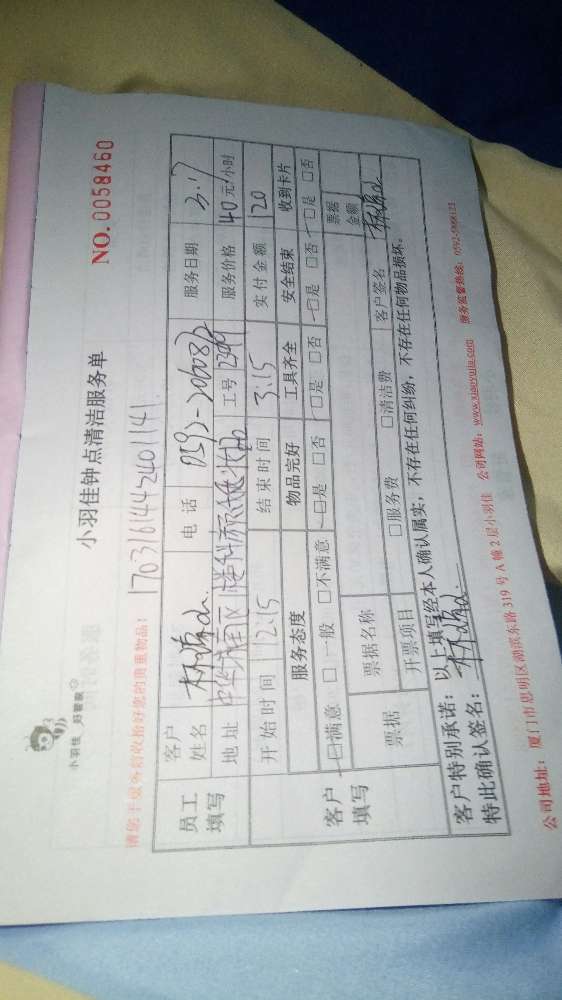 小羽佳 好管家
小羽佳钟点清洁服务单
NO. 0058460
请您于服务前收拾好您的贵重物品!
1703161442401141
员工填写
客户姓名
电话
服务日期 3.17
地址
工号
服务价格 40元/小时
开始时间 12:15
结束时间 3:15
实付金额 120
客户填写
服务态度
物品完好
工具齐全
安全结束
收到卡片
□满意 □一般 □不满意
□是 □否
□是 □否
□是 □否
□是 □否
票据
票据名称
票据金额
开票项目
□服务费 □清洁费
客户签名
客户特别承诺:以上填写经本人确认属实,不存在任何纠纷,不存在任何物品损坏。
特此确认签名:
公司地址:厦门市思明区湖滨东路 319 号 A 幢 2 层小羽佳 公司网站:www.xiaoyujia.com 服务监督热线: